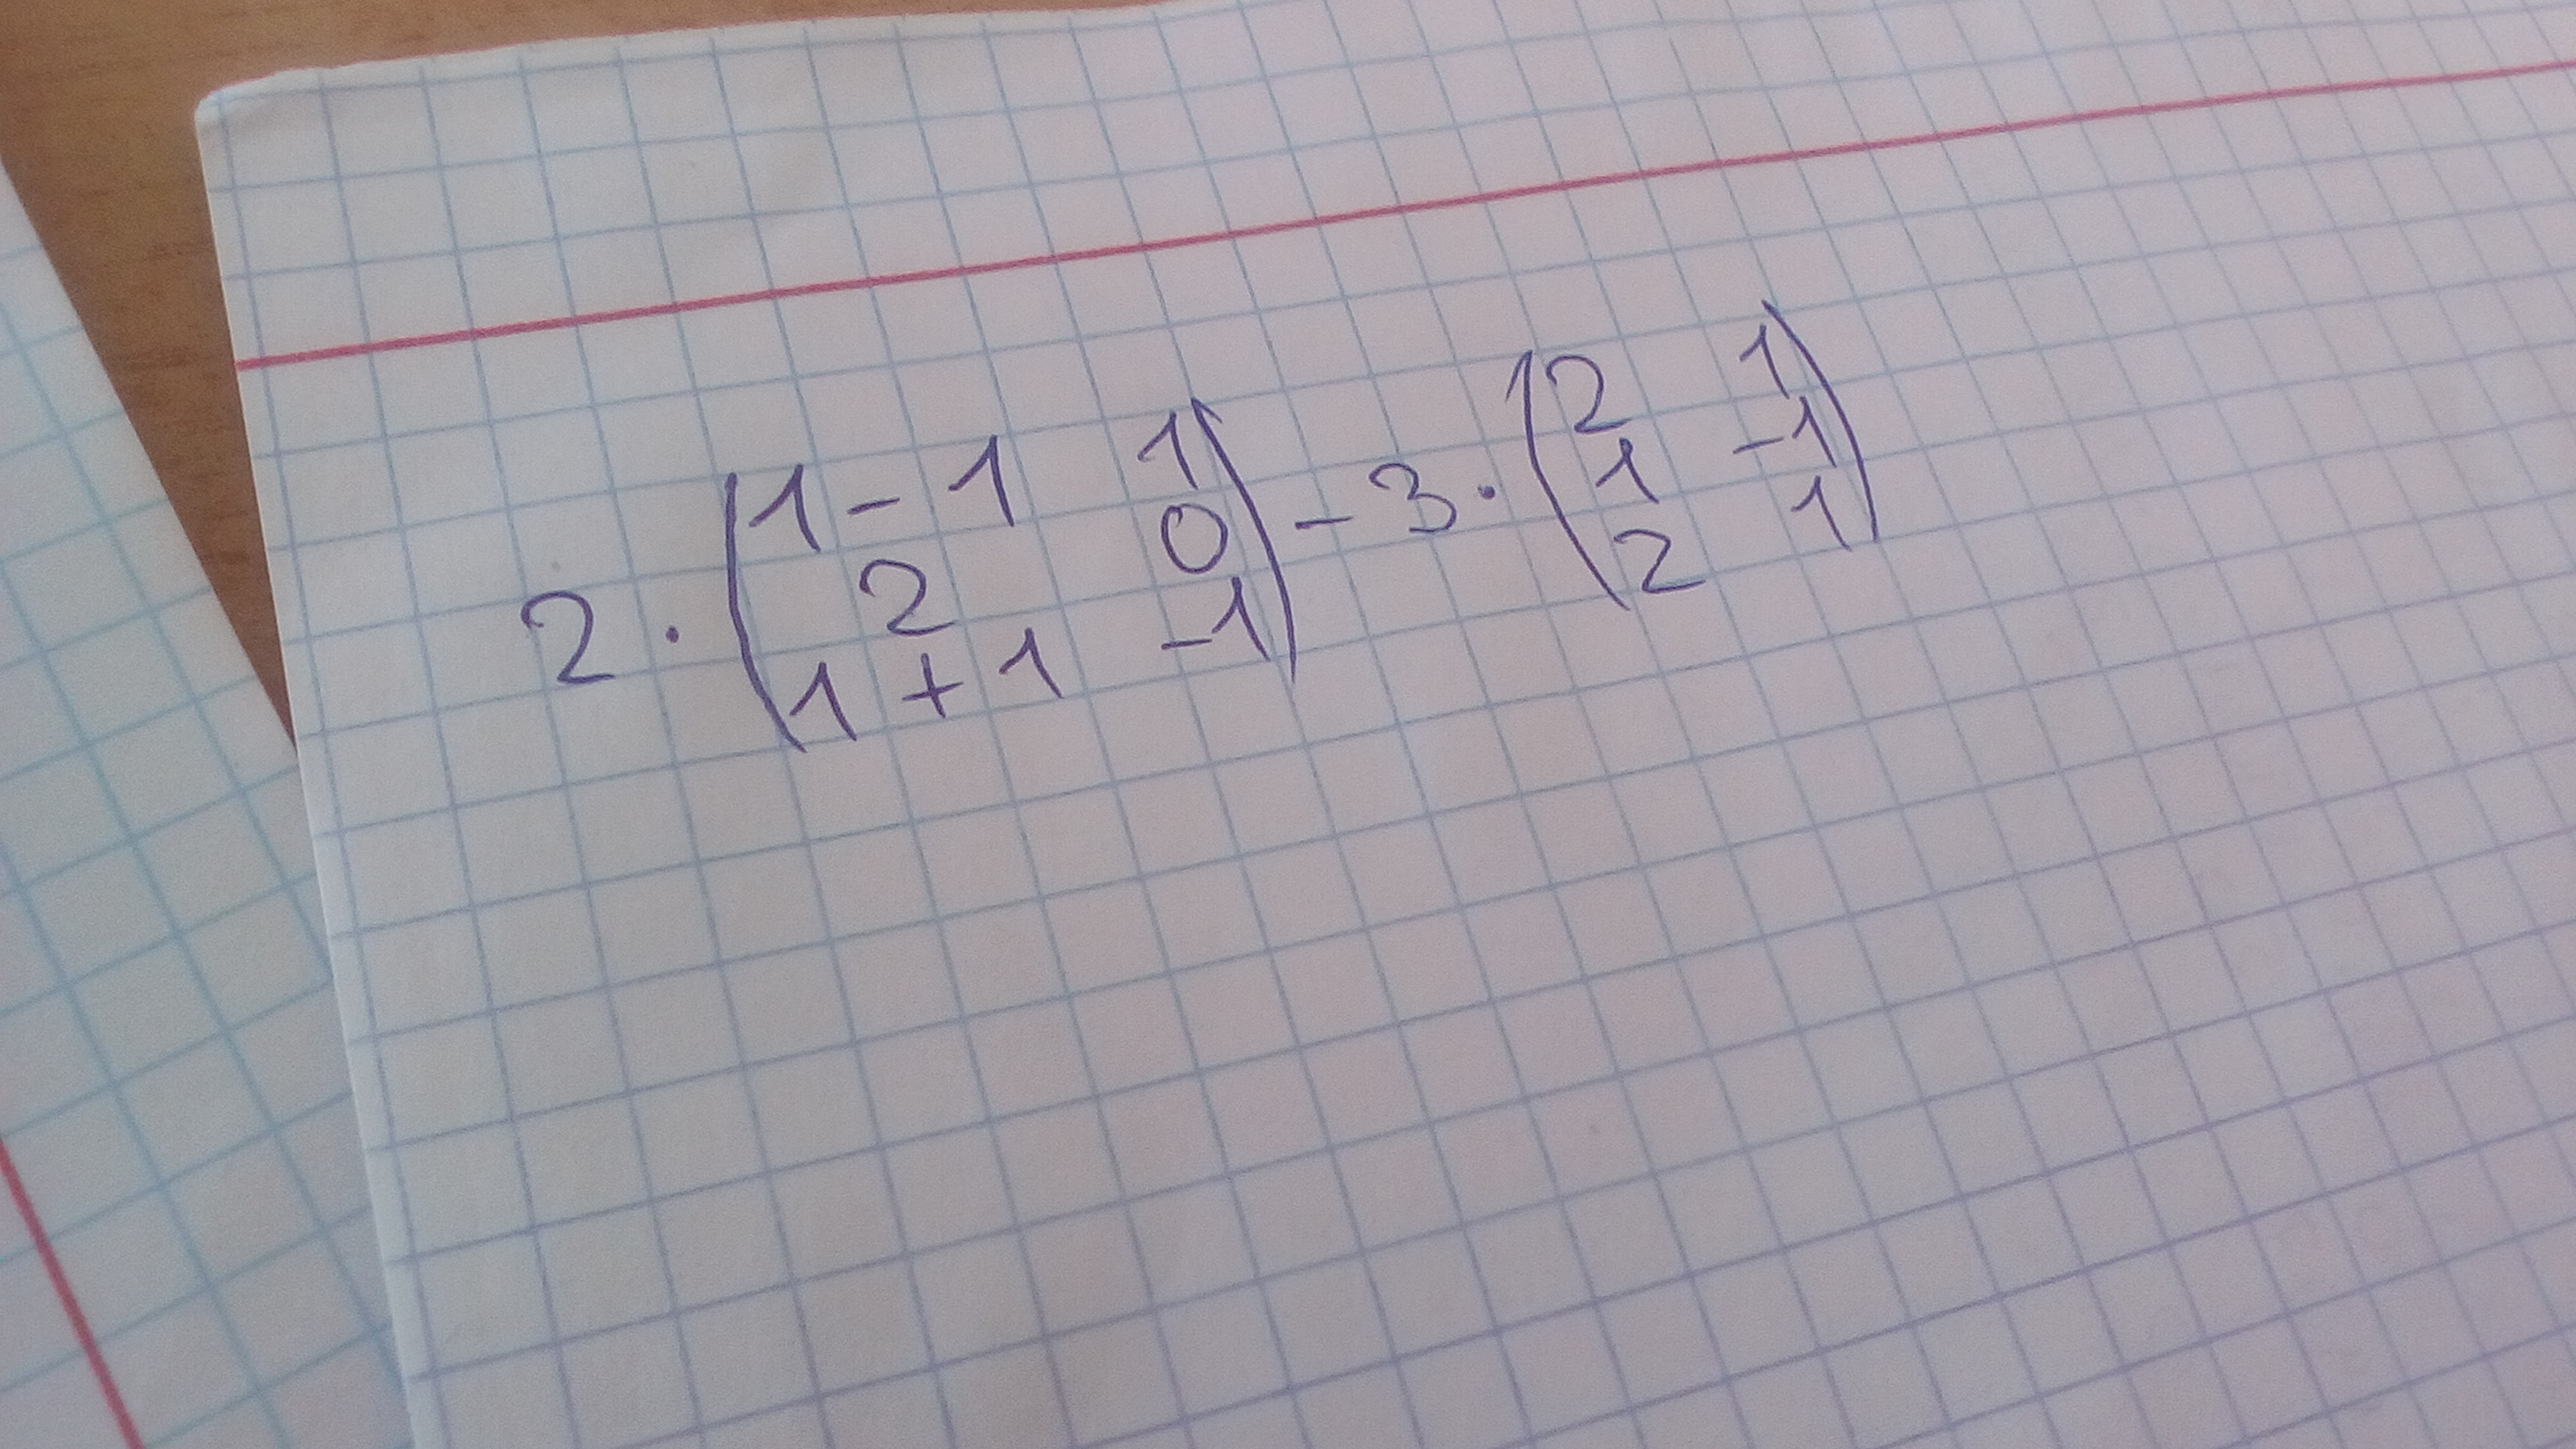 2 · (1 - 1 1
2 0
1 + 1 -1) - 3 · (2 1
1 -1
2 1)